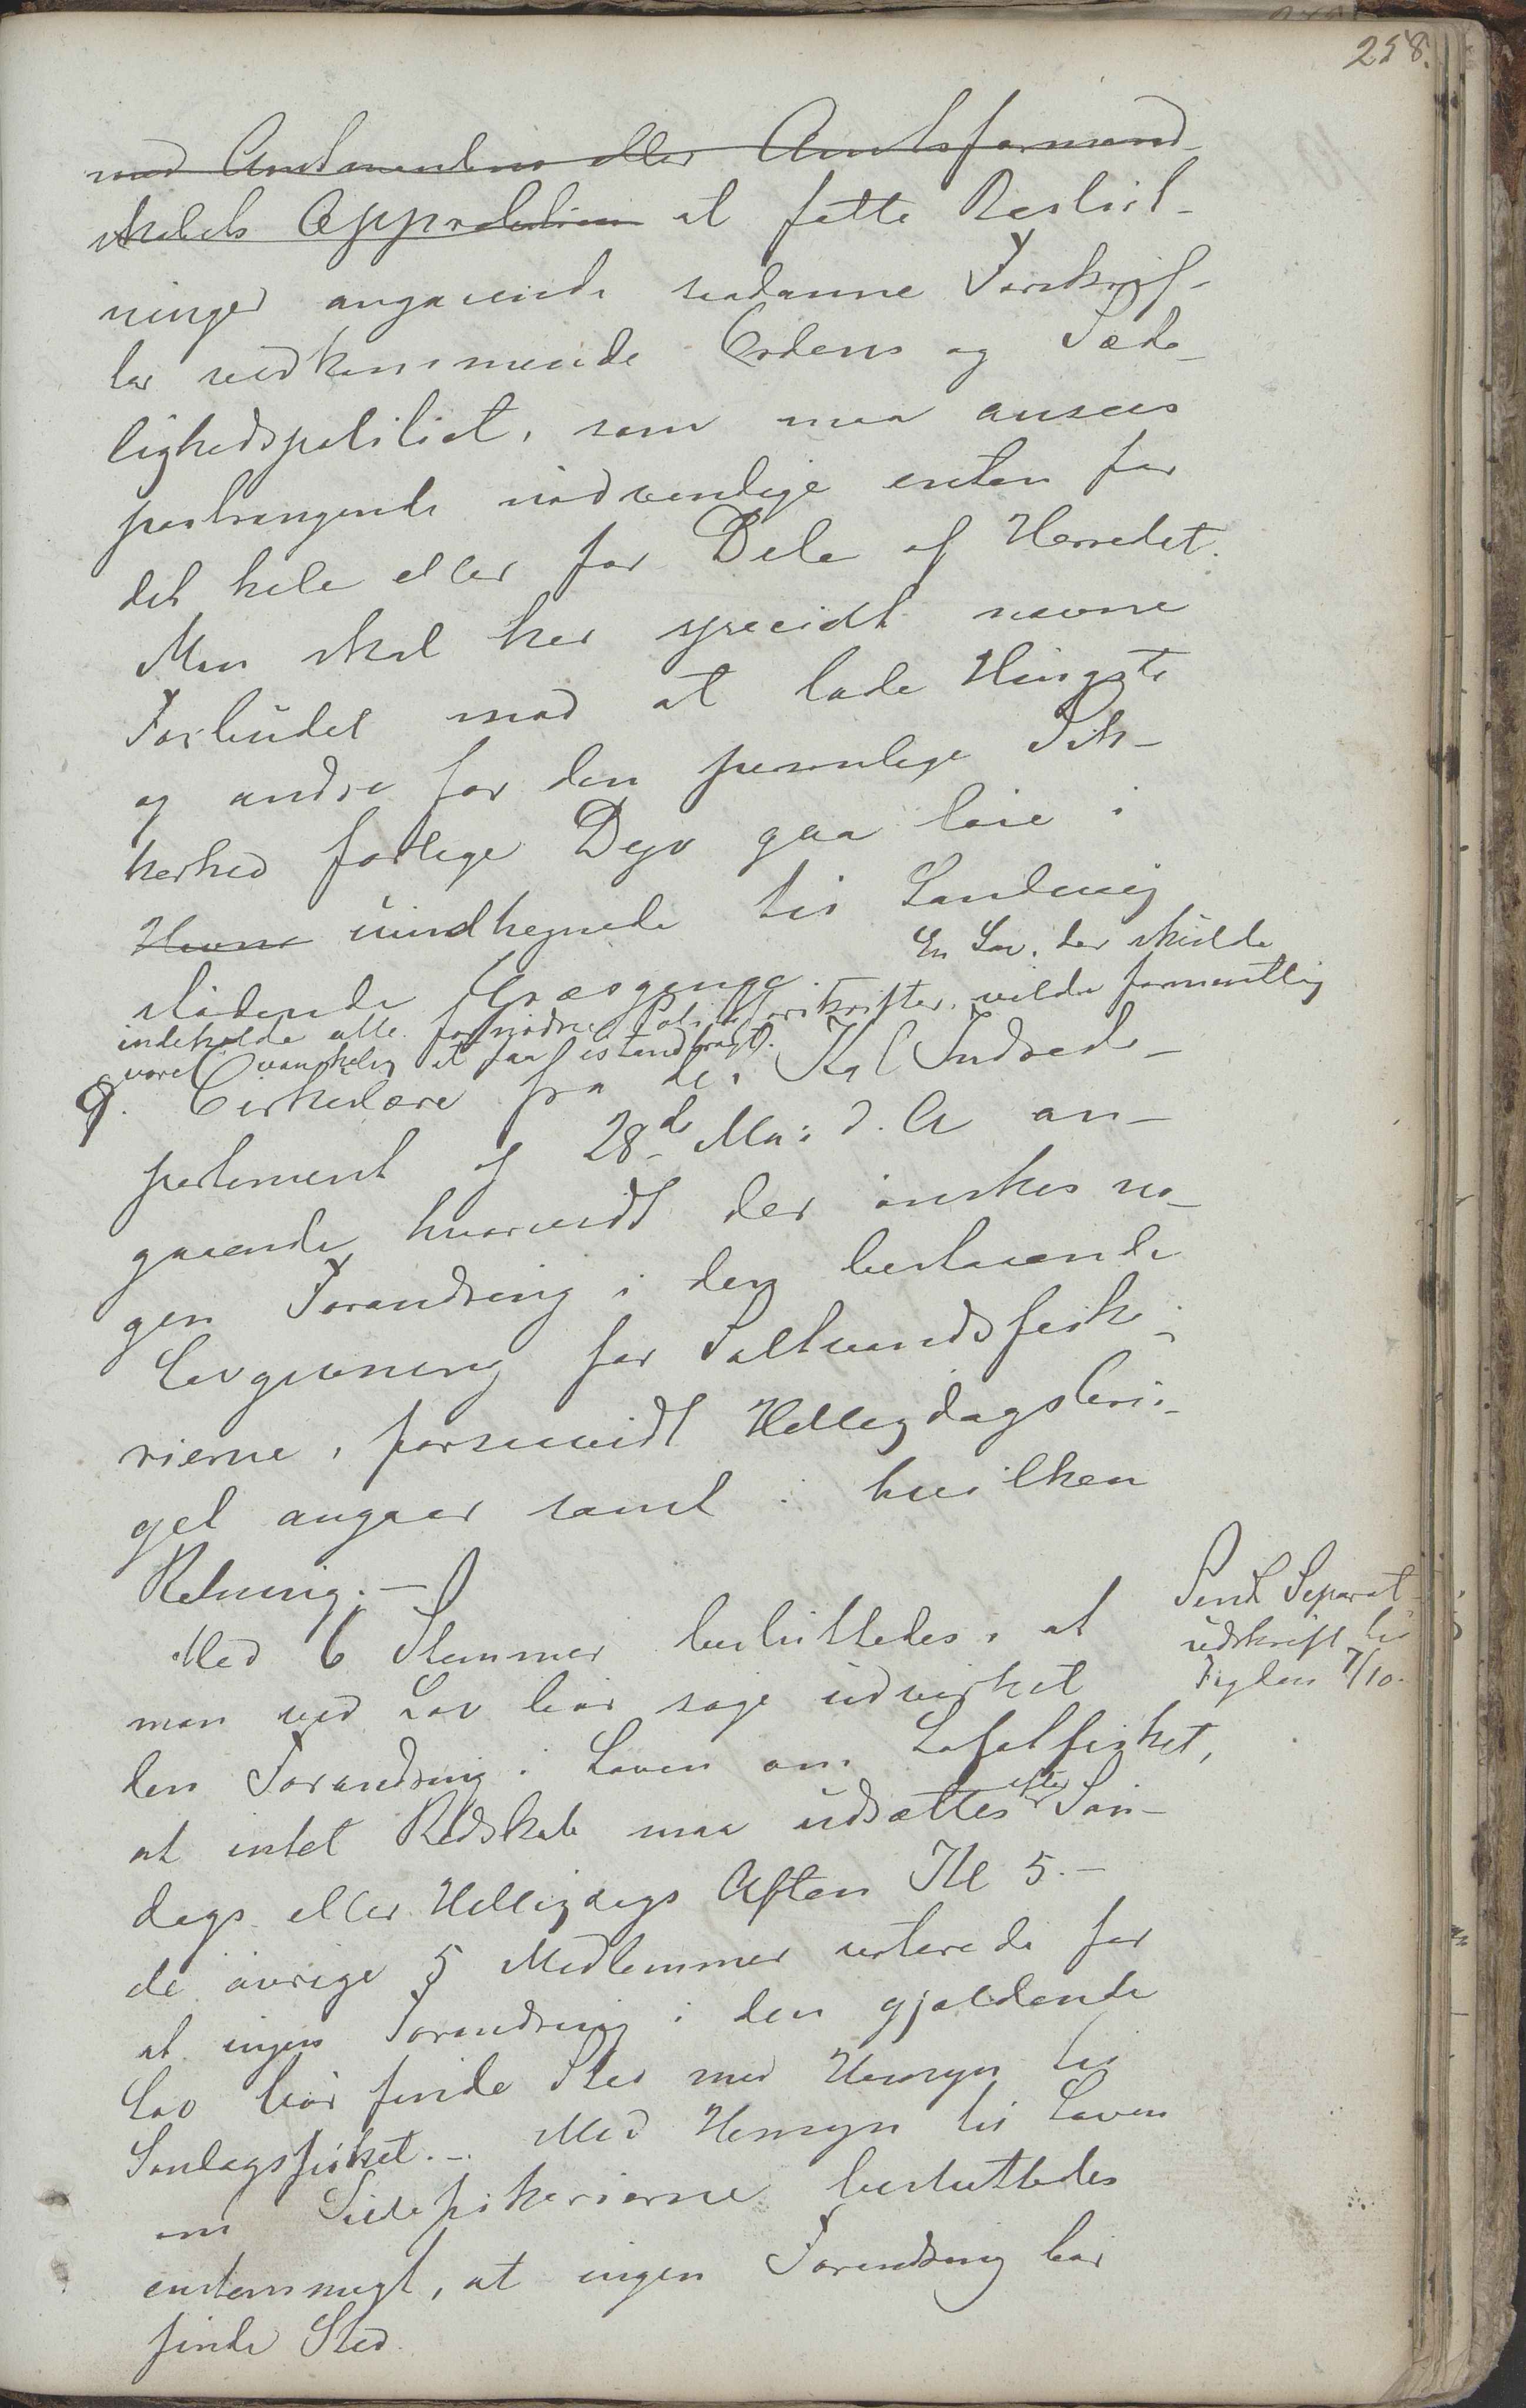 258.
med Amtmandens eller Amtsformand-
skabets Approbation at fatte Beslut-
ninger angaaende saadanne Forskrif-
ter vedkommende Ordens og Sæde-
lighedspolitiet, som maa ansees
paatrængende nødvendige enten for
det hele eller for Dele af Herredet.
Man skal her specielt nævne
Forbudet mod at lade Hingste
og andre for den personlige Sik-
kerhed farlige Dyr gaa løse i
Havne uindhegnede til Landevej
stødende Græsgange. — En Lov, der skulde
indeholde alle fornødne Politiforskrifter, vilde formentlig
være vanskelig at faa istandbragt.
9. Cirkulære fra det Kgl Indrede-
partement af 28de Mai d. A an-
gaaende, hvorvidt der ønskes no-
gen Forandring i den bestaaende
Lovgivning for Saltvandsfiske-
rierne, forsaavidt Helligdagsbrø-
get angaar samt i hvilken
Retning. —
Med 6 Stemmer besluttedes, at
man ved Lov bør søge udvirket
den Forandring i Loven om Lofotfisket,
at intet Redskab maa udsættes efter Søn-
dags eller Helligdags Aften Kl 5. —
de øvrige 5 Medlemmer voterede for
at ingen Forandring i den gjældende
Lov bør finde Sted med Hensyn til
Søndagsfisket. — Med Hensyn til Loven
om Sildefiskerierne besluttedes
enstemmigt, at ingen Forandring bør
finde Sted.
Sendt Separat-
udskrift til
Fogden 7/10.